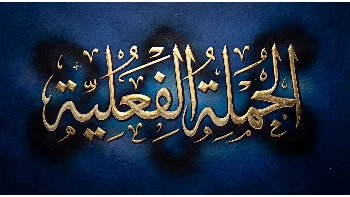 الجملة الفعلية